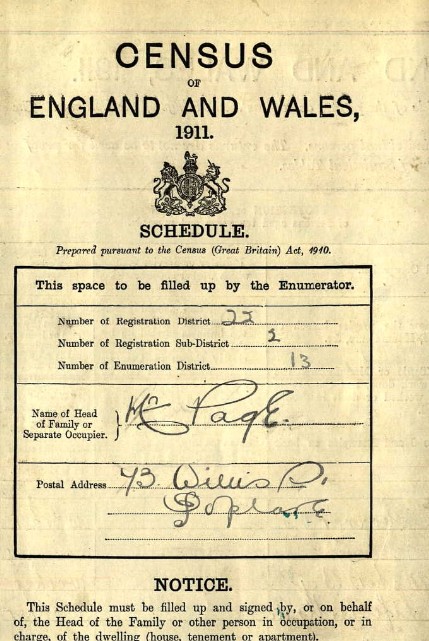 CENSUS
OF
ENGLAND AND WALES,
1911.
SCHEDULE.
Prepared pursuant to the Census (Great Britain) Act, 1910.
This space to be filled up by the Enumerator.
Number of Registration District 22
Number of Registration Sub-District 2
Number of Enumeration District 13
Name of Head
of Family or
Separate Occupier.
Mr Page.
Postal Address 73 Willis
Poplar E.
NOTICE.
This Schedule must be filled up and signed by, or on behalf
of, the Head of the Family or other person in occupation, or in
charge, of the dwelling (house, tenement or apartment).